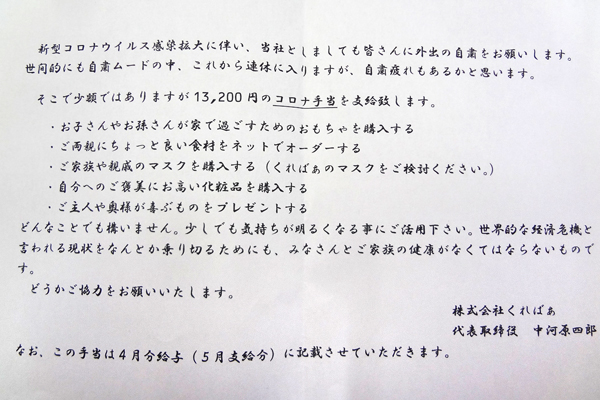 新型コロナウイルス感染拡大に伴い、当社としましても皆さんに外出の自粛をお願いします。
世間的にも自粛ムードの中、これから連休に入りますが、自粛疲れもあるかと思います。
そこで少額ではありますが13,200円のコロナ手当を支給致します。
・お子さんやお孫さんが家で過ごすためのおもちゃを購入する
・ご両親にちょっと良い食材をネットでオーダーする
・ご家族や親戚のマスクを購入する（くればぁのマスクをご検討ください。）
・自分へのご褒美にお高い化粧品を購入する
・ご主人や奥様が喜ぶものをプレゼントする
どんなことでも構いません。少しでも気持ちが明るくなる事にご活用下さい。世界的な経済危機と
言われる現状をなんとか乗り切るためにも、みなさんとご家族の健康がなくてはならないもので
す。
どうかご協力をお願いいたします。
株式会社くればぁ
代表取締役　中河原四郎
なお、この手当は４月分給与（５月支給分）に記載させていただきます。